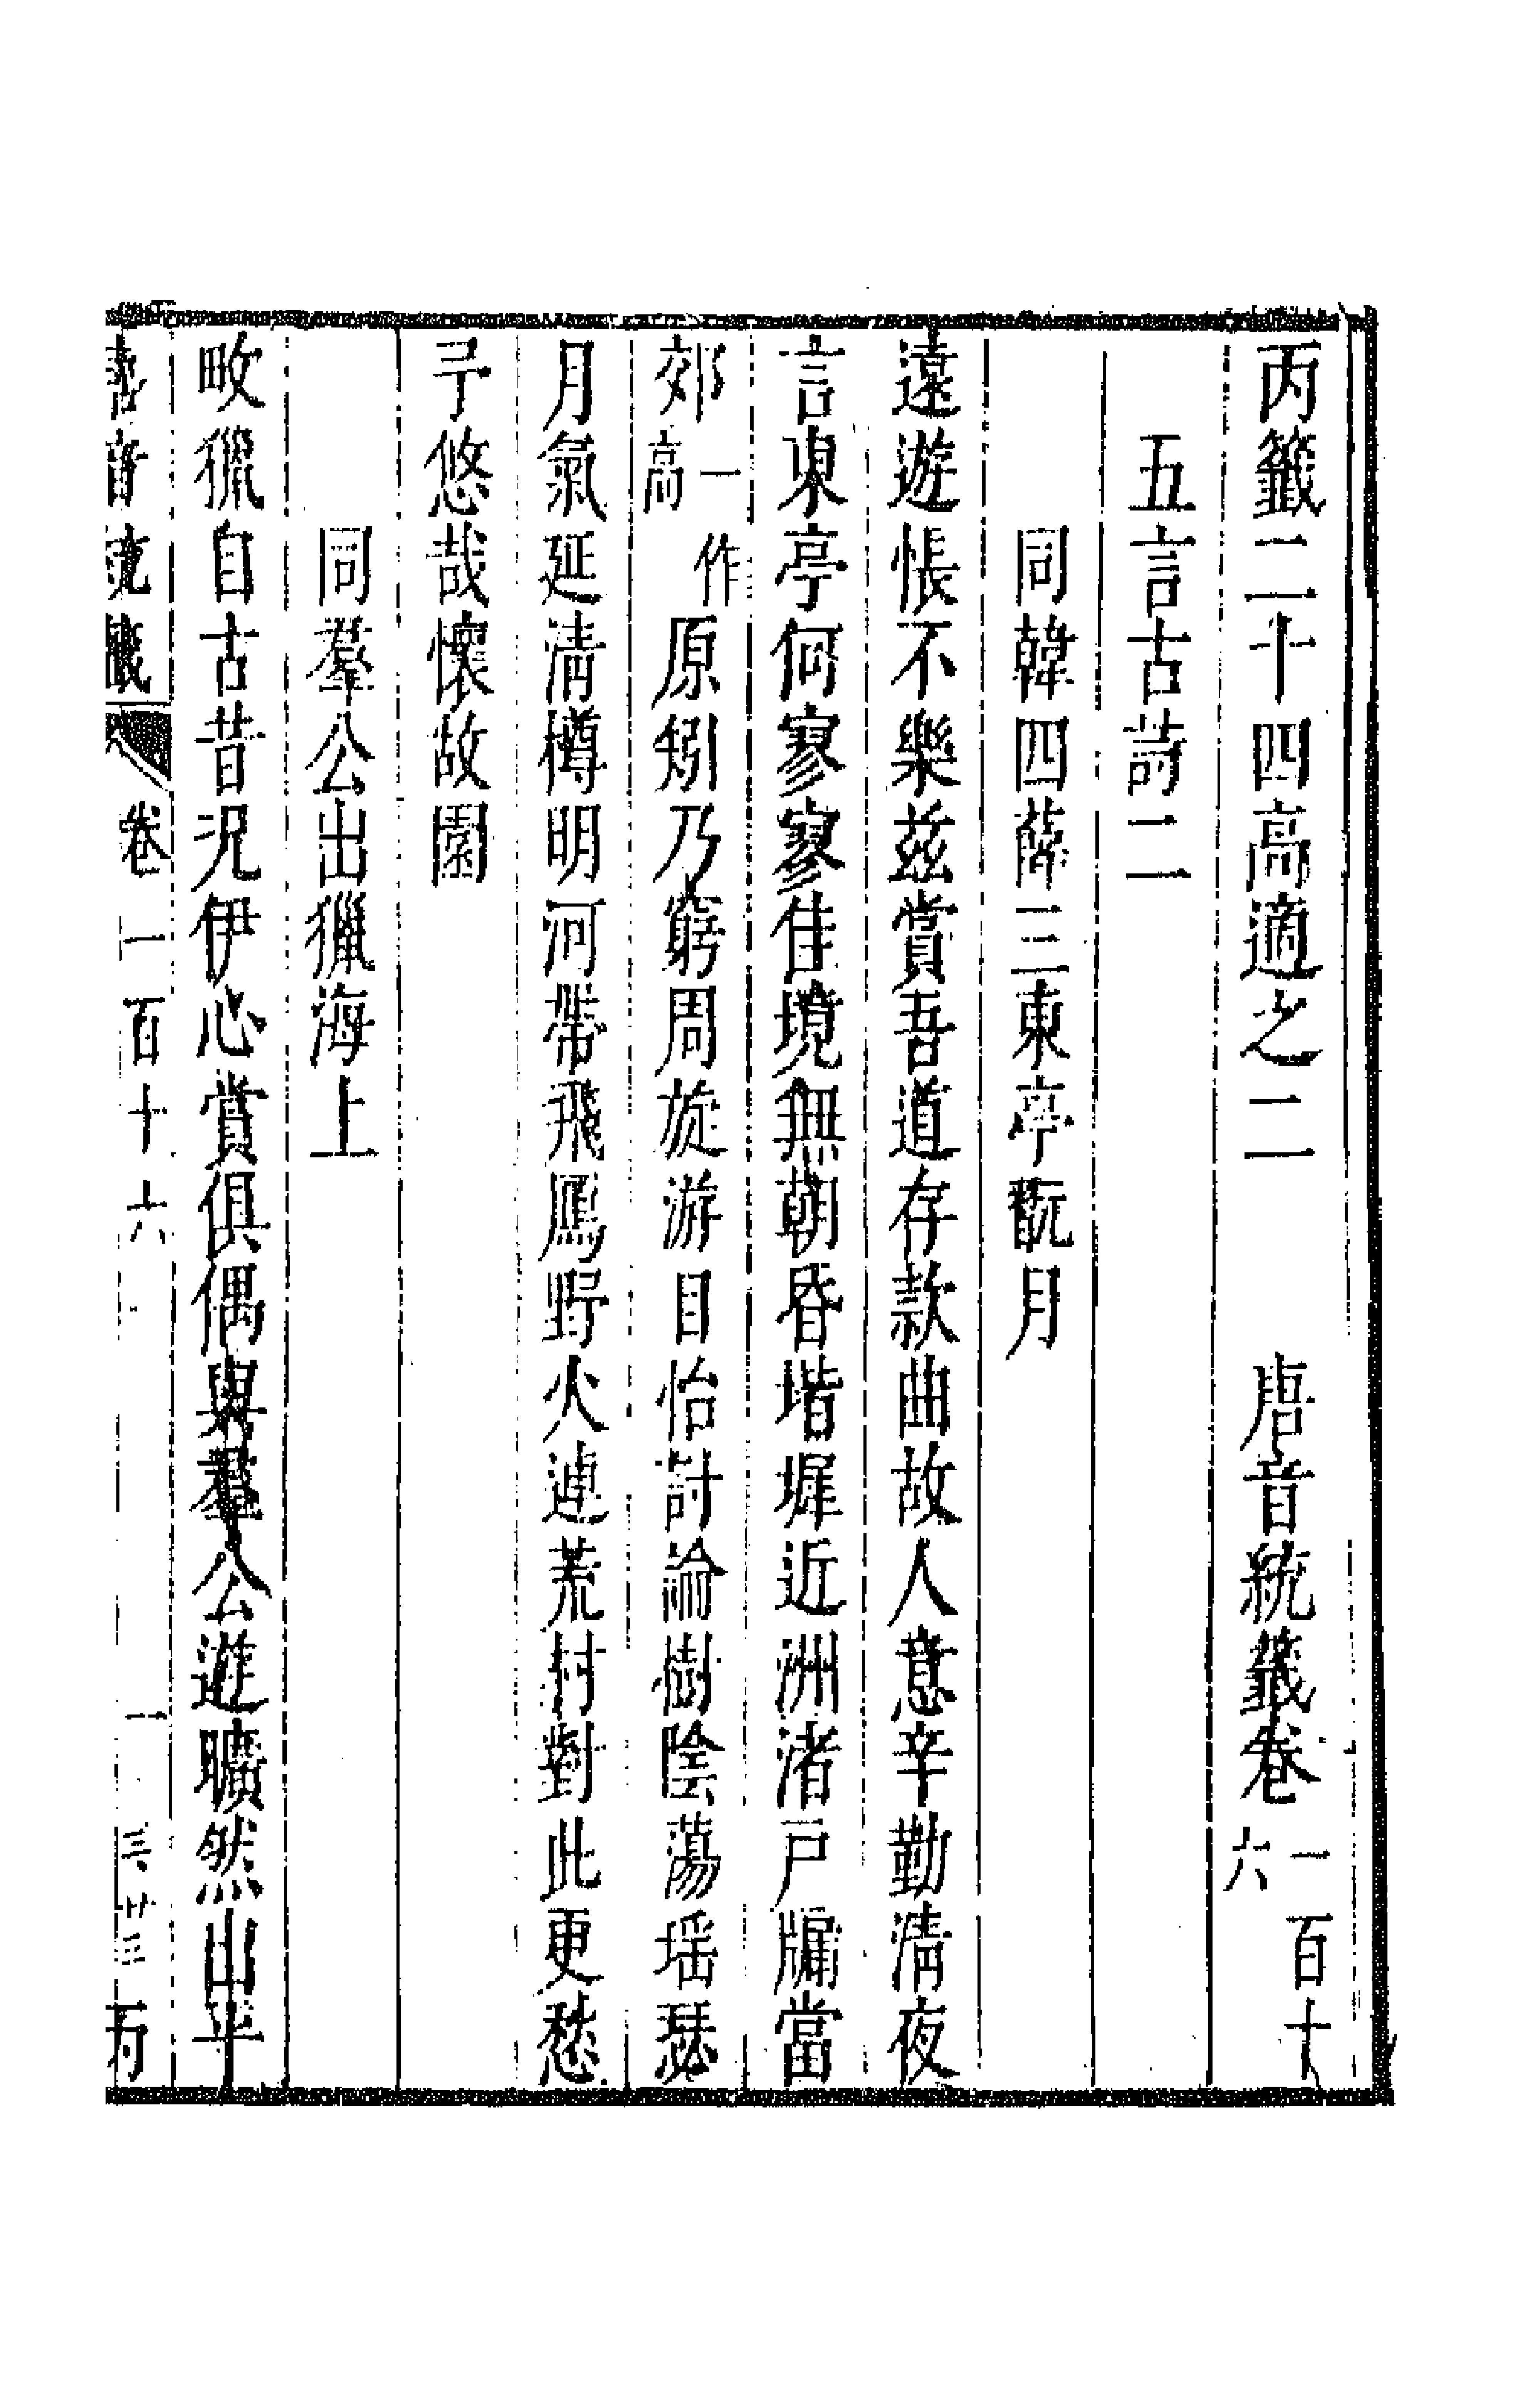 丙籤二十四高適之二　唐音統籤卷一百十六
五言古詩二
同韓四薛三東亭翫月
遠遊悵不樂兹賞吾道存款曲故人意辛勤清夜
言東亭何寥寥佳境無朝昏堦墀近洲渚戸牖當
郊一作高原矧乃窮周旋游目怡討論樹陰蕩瑶瑟
月氣延清樽明河帶飛鴈野火連荒村對此更愁
予悠哉懷故園
同羣公出獵海上
畋獵自古昔況伊心賞俱偶與羣公遊曠然出平
唐音統籤　卷一百十六　一